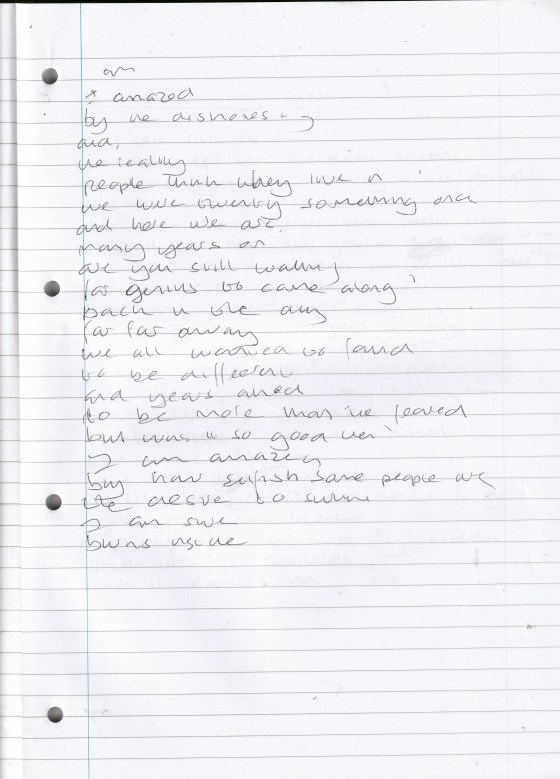 am
I amazed
by the dishonesty
and,
the reality
people think they live in
we were twenty something once
and here we are.
many years on
are you still waiting
for genius to come along?
back in the day
far far away
we all wanted to
to be different
and years ahead
to be more than we feared
but was it so good then?
I am amazed
by how selfish some people are
the desire to
I am sure
burns inside